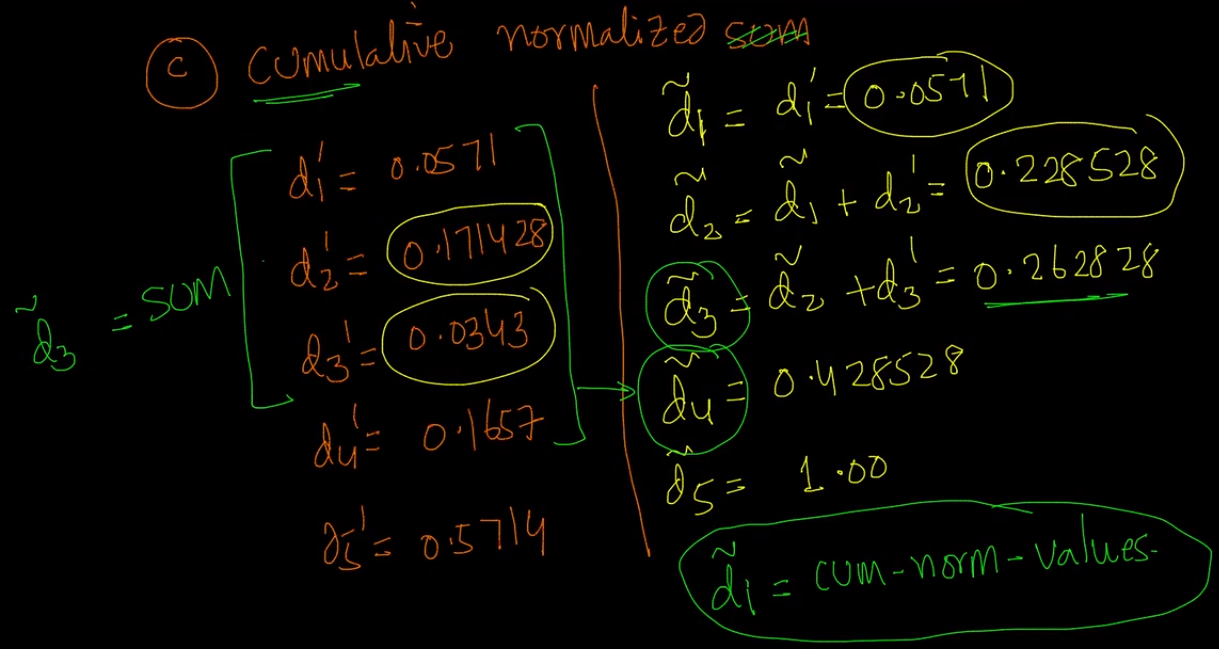 C Cumulative normalized sum
d₁' = 0.0571
d₂' = 0.171428
d₃' = 0.0343
d₄' = 0.1657
d₅' = 0.5714
d̃₃ = SUM
d̃₁ = d₁' = 0.0571
d̃₂ = d̃₁ + d₂' = 0.228528
d̃₃ = d̃₂ + d₃' = 0.262828
d̃₄ = 0.428528
d̃₅ = 1.00
d̃ᵢ = cum-norm-values.